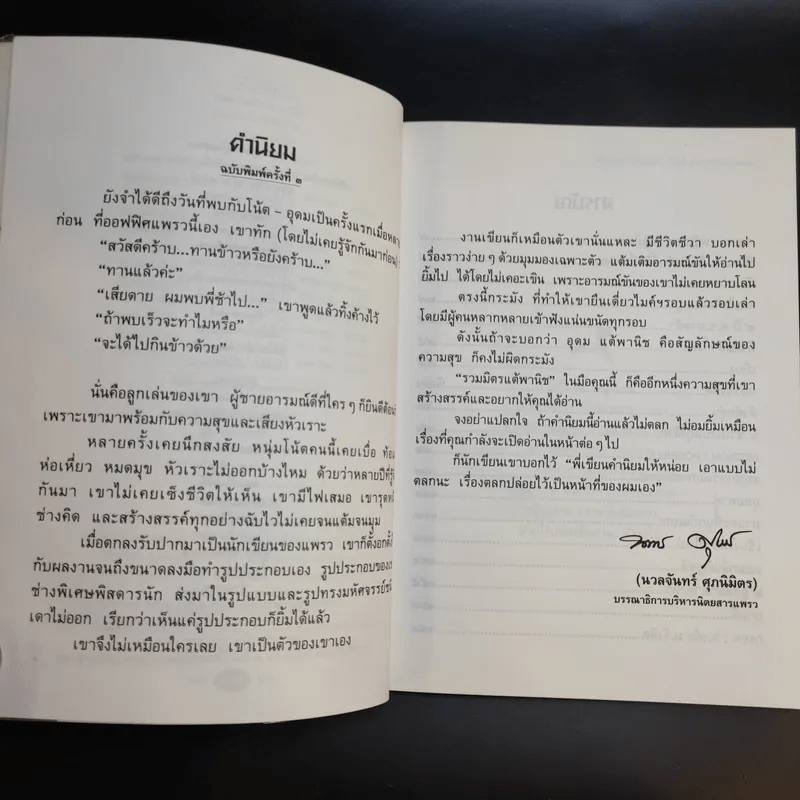 คำนิยม
ฉบับพิมพ์ครั้งที่ ๓
ยังจำได้ดีถึงวันที่พบกับโน้ต – อุดมเป็นครั้งแรกเมื่อ
ก่อน ที่ออฟฟิศแพรวนี้เอง เขาทัก (โดยไม่เคยรู้จักกันมาก่อน)
“สวัสดีคร้าบ...ทานข้าวหรือยังคร้าบ...”
“ทานแล้วค่ะ”
“เสียดาย ผมพบพี่ช้าไป...” เขาพูดแล้วทิ้งค้างไว้
“ถ้าพบเร็วจะทำไมหรือ”
“จะได้ไปกินข้าวด้วย”
นั่นคือลูกเล่นของเขา ผู้ชายอารมณ์ดีที่ใครๆ ก็ยินดีต้อนรับ
เพราะเขามาพร้อมกับความสุขและเสียงหัวเราะ
หลายครั้งเคยนึกสงสัย หนุ่มโน้ตคนนี้เคยเบื่อ ท้อ
ห่อเหี่ยว หมดมุข หัวเราะไม่ออกบ้างไหม ด้วยว่าหลายปีที่รู้จัก
กันมา เขาไม่เคยเซ็งชีวิตให้เห็น เขามีไฟเสมอ เขารุดหน้า
ช่างคิด และสร้างสรรค์ทุกอย่างฉับไวไม่เคยจนแต้มจนมุม
เมื่อตกลงรับปากมาเป็นนักเขียนของแพรว เขาก็ตั้งอกตั้งใจ
กับผลงานจนถึงขนาดลงมือทำรูปประกอบเอง รูปประกอบของเขา
ช่างพิเศษพิสดารนัก ส่งมาในรูปแบบและรูปทรงมหัศจรรย์ชนิด
เดาไม่ออก เรียกว่าเห็นแค่รูปประกอบก็ยิ้มได้แล้ว
เขาจึงไม่เหมือนใครเลย เขาเป็นตัวของเขาเอง
งานเขียนก็เหมือนตัวเขานั่นแหละ มีชีวิตชีวา บอกเล่า
เรื่องราวง่ายๆ ด้วยมุมมองเฉพาะตัว แต้มเติมอารมณ์ขันให้อ่านไป
ยิ้มไป ได้โดยไม่เคอะเขิน เพราะอารมณ์ขันของเขาไม่เคยหยาบโลน
ตรงนี้กระมัง ที่ทำให้เขายืนเดี่ยวไมค์ฯรอบแล้วรอบเล่า
โดยมีผู้คนหลากหลายเข้าฟังแน่นขนัดทุกรอบ
ดังนั้นถ้าจะบอกว่า อุดม แต้พานิช คือสัญลักษณ์ของ
ความสุข ก็คงไม่ผิดกระมัง
“รวมมิตรแต้พานิช” ในมือคุณนี้ ก็คืออีกหนึ่งความสุขที่เขา
สร้างสรรค์และอยากให้คุณได้อ่าน
จงอย่าแปลกใจ ถ้าคำนิยมนี้อ่านแล้วไม่ตลก ไม่อมยิ้มเหมือน
เรื่องที่คุณกำลังจะเปิดอ่านในหน้าต่อๆ ไป
ก็นักเขียนเขาบอกไว้ “พี่เขียนคำนิยมให้หน่อย เอาแบบไม่
ตลกนะ เรื่องตลกปล่อยไว้เป็นหน้าที่ของผมเอง”
(นวลจันทร์ ศุภนิมิตร)
บรรณาธิการบริหารนิตยสารแพรว